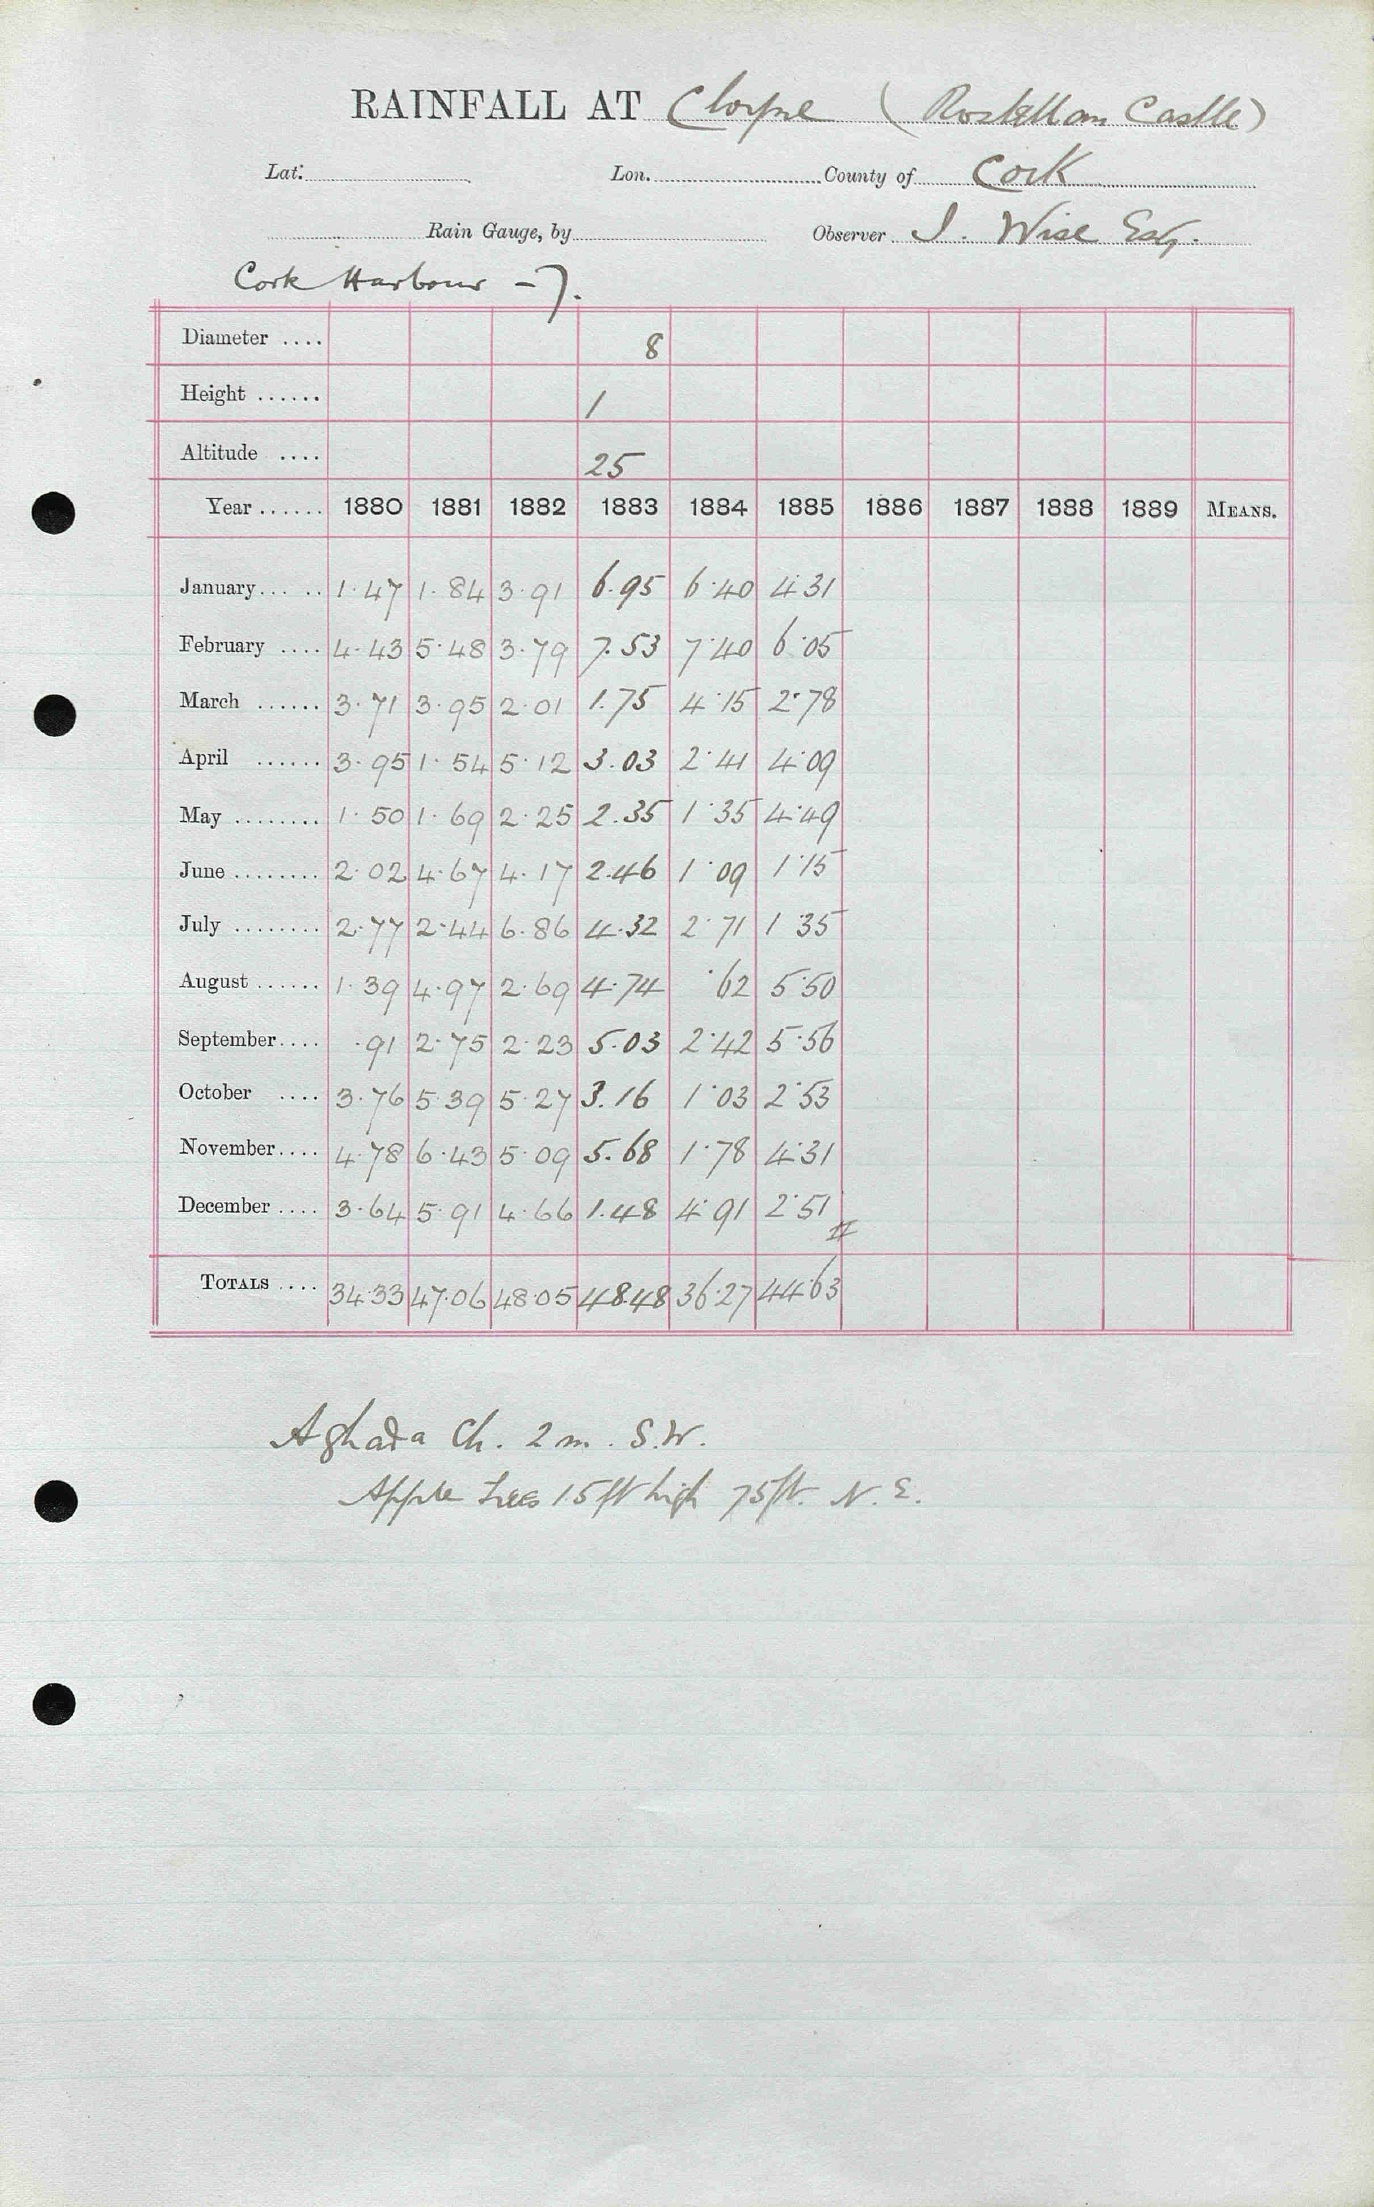 RAINFALL AT Cloyne (Rostellan Castle)
Lat. Lon. County of Cork
Rain Gauge, by Observer J. Wise Esq.
Cork Harbour - 7.
Diameter .... 8
Height ...... 1
Altitude .... 25
Year ...... 1880 1881 1882 1883 1884 1885 1886 1887 1888 1889 MEANS.
January... .. 1.47 1.84 3.91 6.95 6.40 4.31
February .... 4.43 5.48 3.79 7.53 7.40 6.05
March ...... 3.71 3.95 2.01 1.75 4.15 2.78
April ...... 3.95 1.54 5.12 3.03 2.41 4.09
May ........ 1.50 1.69 2.25 2.35 1.35 4.49
June ........ 2.02 4.67 4.17 2.46 1.09 1.15
July ........ 2.77 2.44 6.86 4.32 2.71 1.35
August ...... 1.39 4.97 2.69 4.74 .62 5.50
September.... .91 2.75 2.23 5.03 2.42 5.56
October .... 3.76 5.39 5.27 3.16 1.03 2.53
November.... 4.78 6.43 5.09 5.68 1.78 4.31
December .... 3.64 5.91 4.66 1.48 4.91 2.51
TOTALS .... 34.33 47.06 48.05 48.48 36.27 44.63
Aghada Ch. 2 m. S.W.
Apple trees 15 ft high 75 ft. N.E.